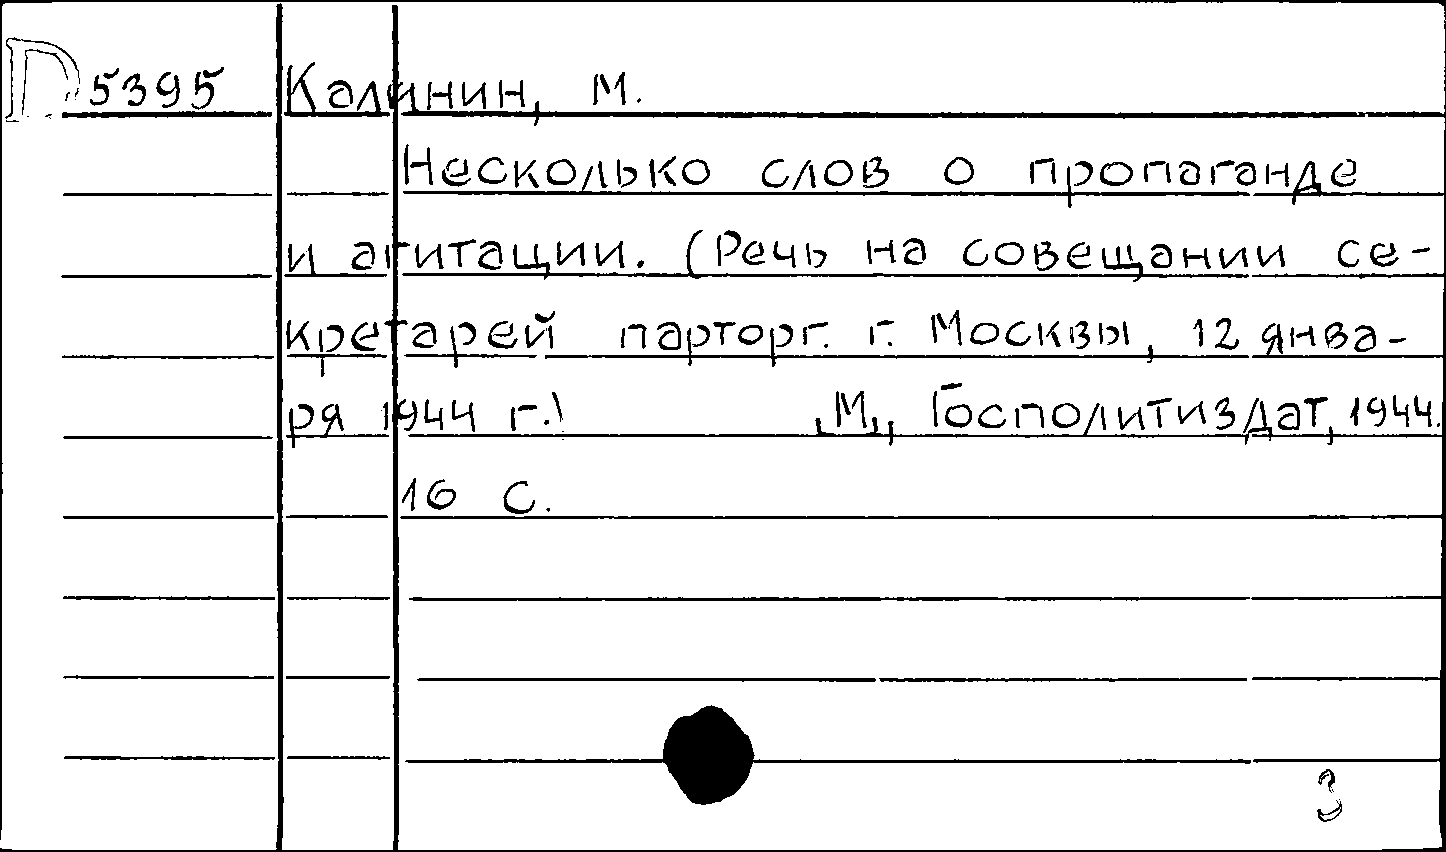 D 5395 Калинин, М.
Несколько слов о пропаганде
и агитации. (Речь на совещании се-
кретарей парторг. г. Москвы, 12 янва-
ря 1944 г.) М., Госполитиздат, 1944.
16 с.
3